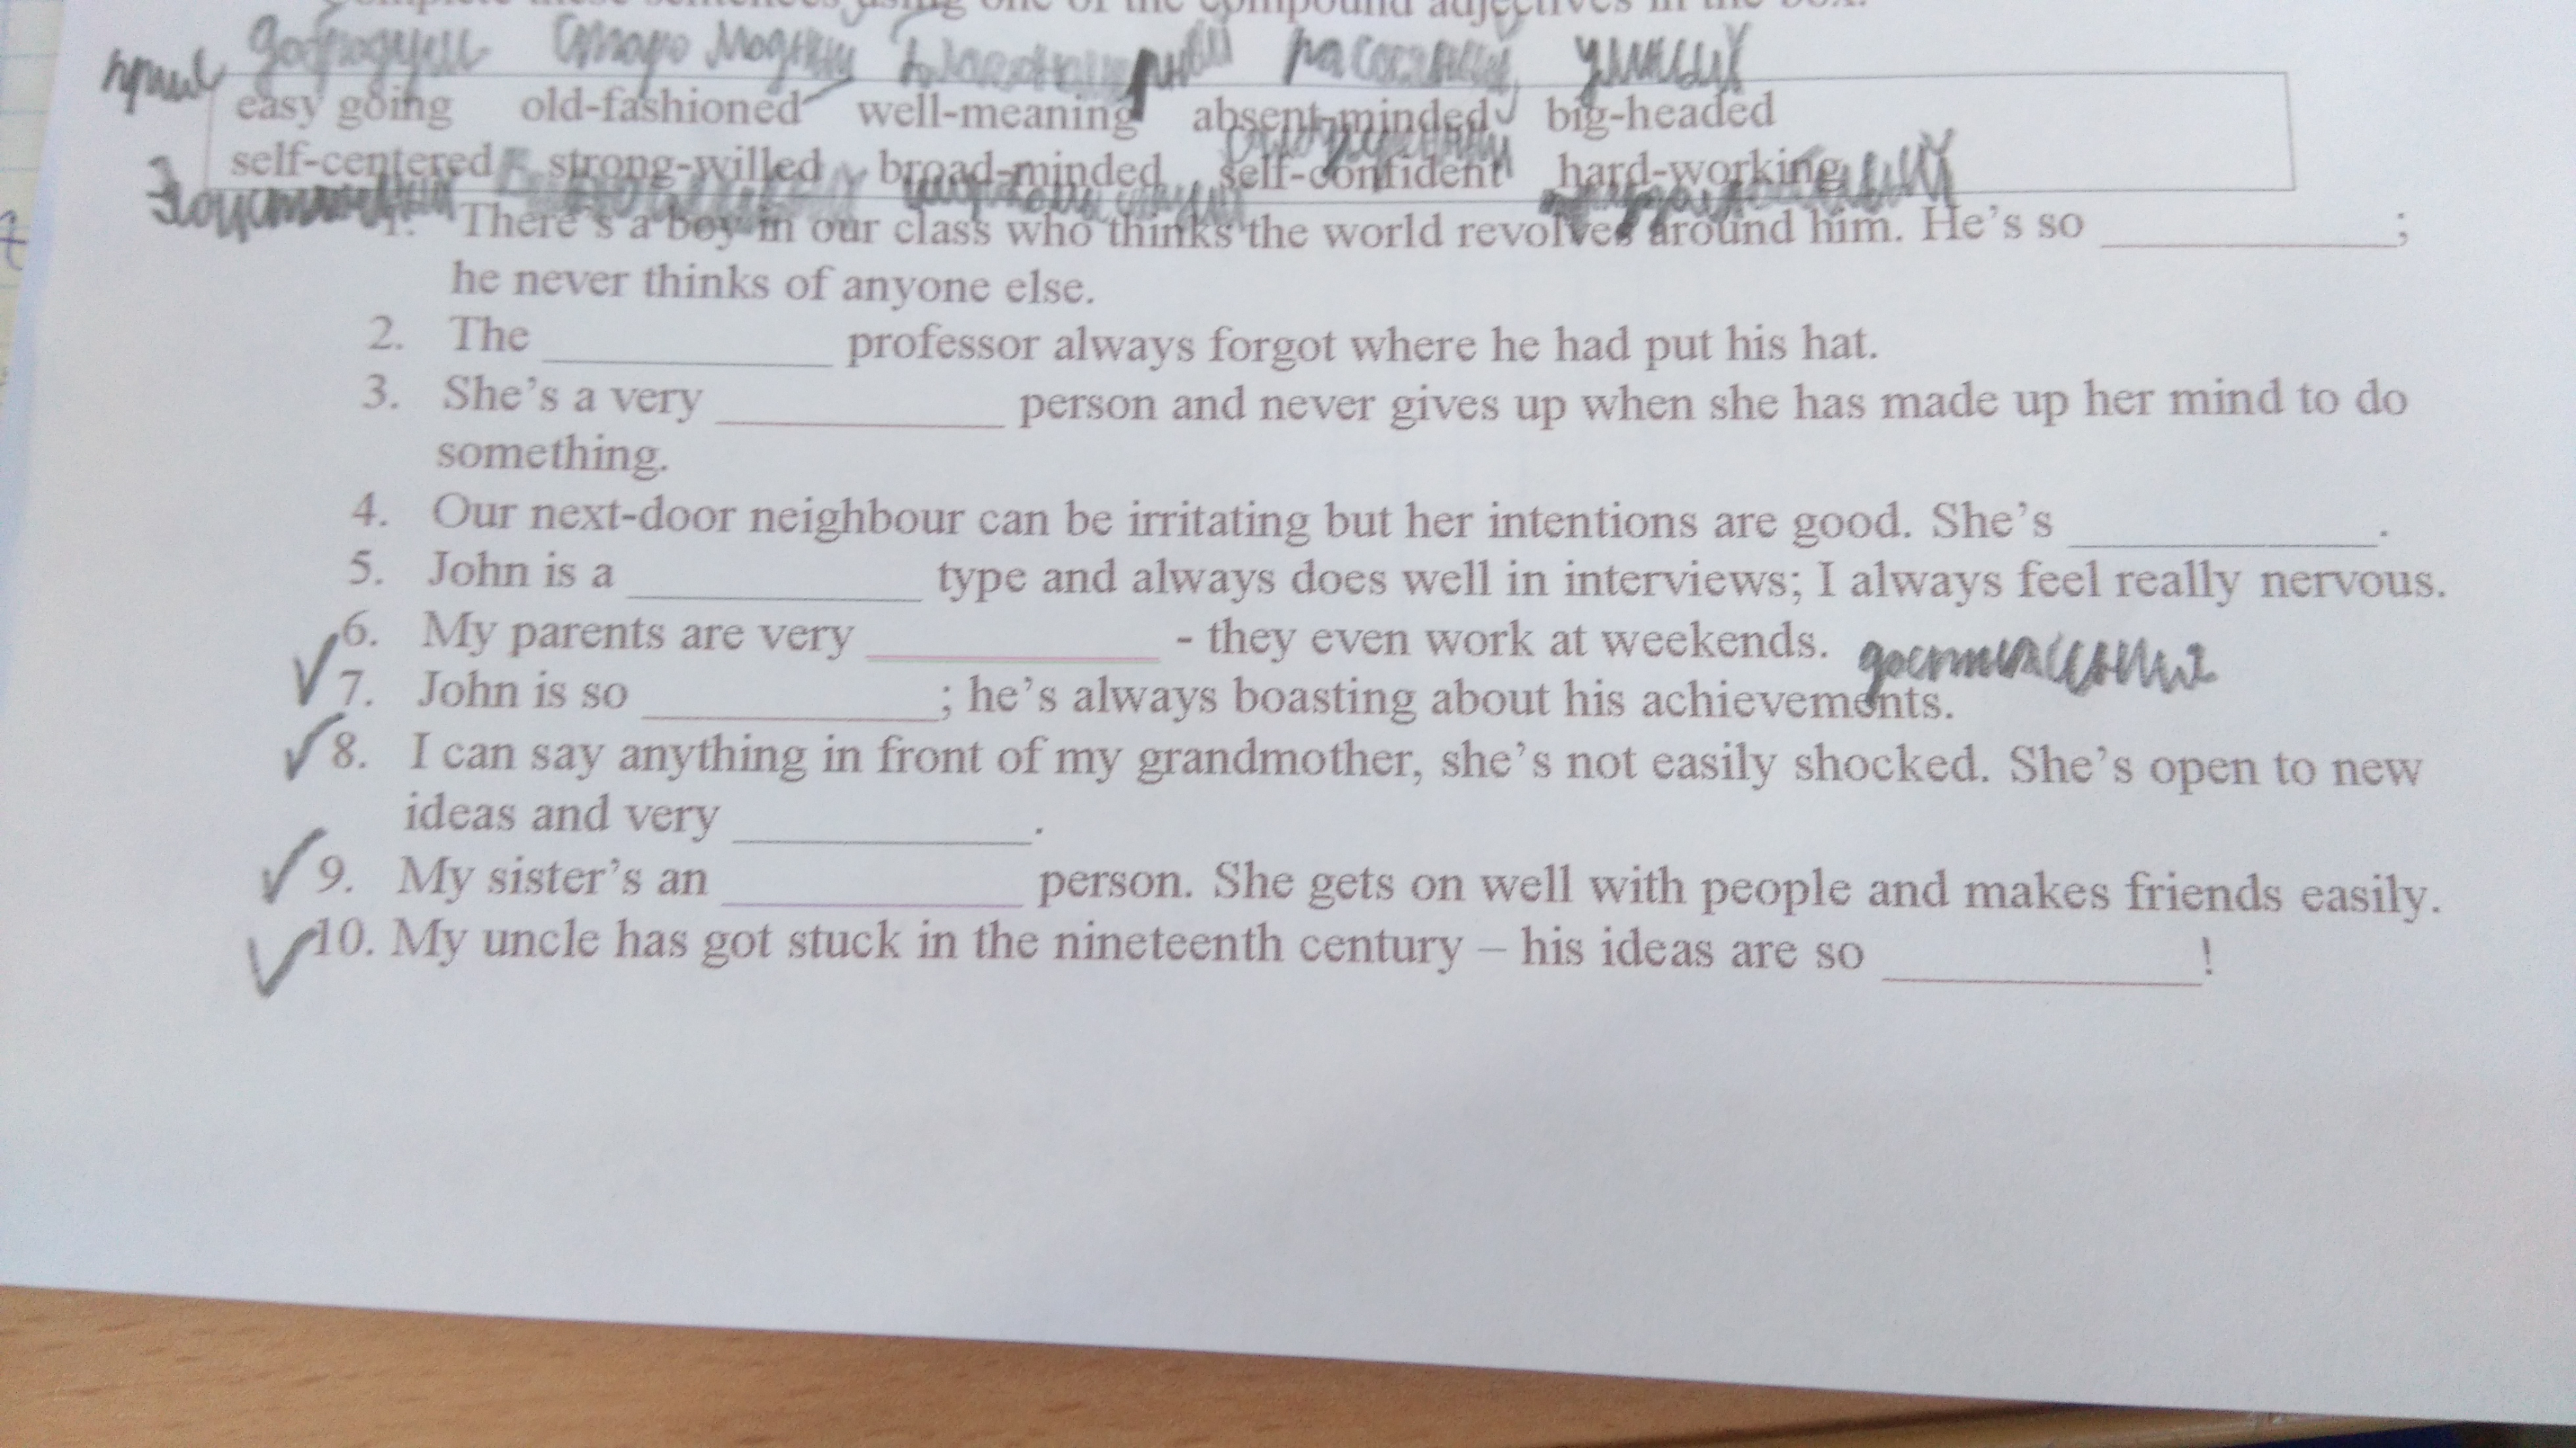 Complete these sentences using one of the compound adjectives in the box.
добродуш Старо модный рассеянный умный
easy going old-fashioned well-meaning absent-minded big-headed
self-centered strong-willed broad-minded self-confident hard-working
1. There's a boy in our class who thinks the world revolves around him. He's so ____________;
he never thinks of anyone else.
2. The ____________ professor always forgot where he had put his hat.
3. She's a very ____________ person and never gives up when she has made up her mind to do
something.
4. Our next-door neighbour can be irritating but her intentions are good. She's ____________.
5. John is a ____________ type and always does well in interviews; I always feel really nervous.
6. My parents are very ____________ - they even work at weekends.
7. John is so ____________; he's always boasting about his achievements.
8. I can say anything in front of my grandmother, she's not easily shocked. She's open to new
ideas and very ____________.
9. My sister's an ____________ person. She gets on well with people and makes friends easily.
10. My uncle has got stuck in the nineteenth century – his ideas are so ____________!